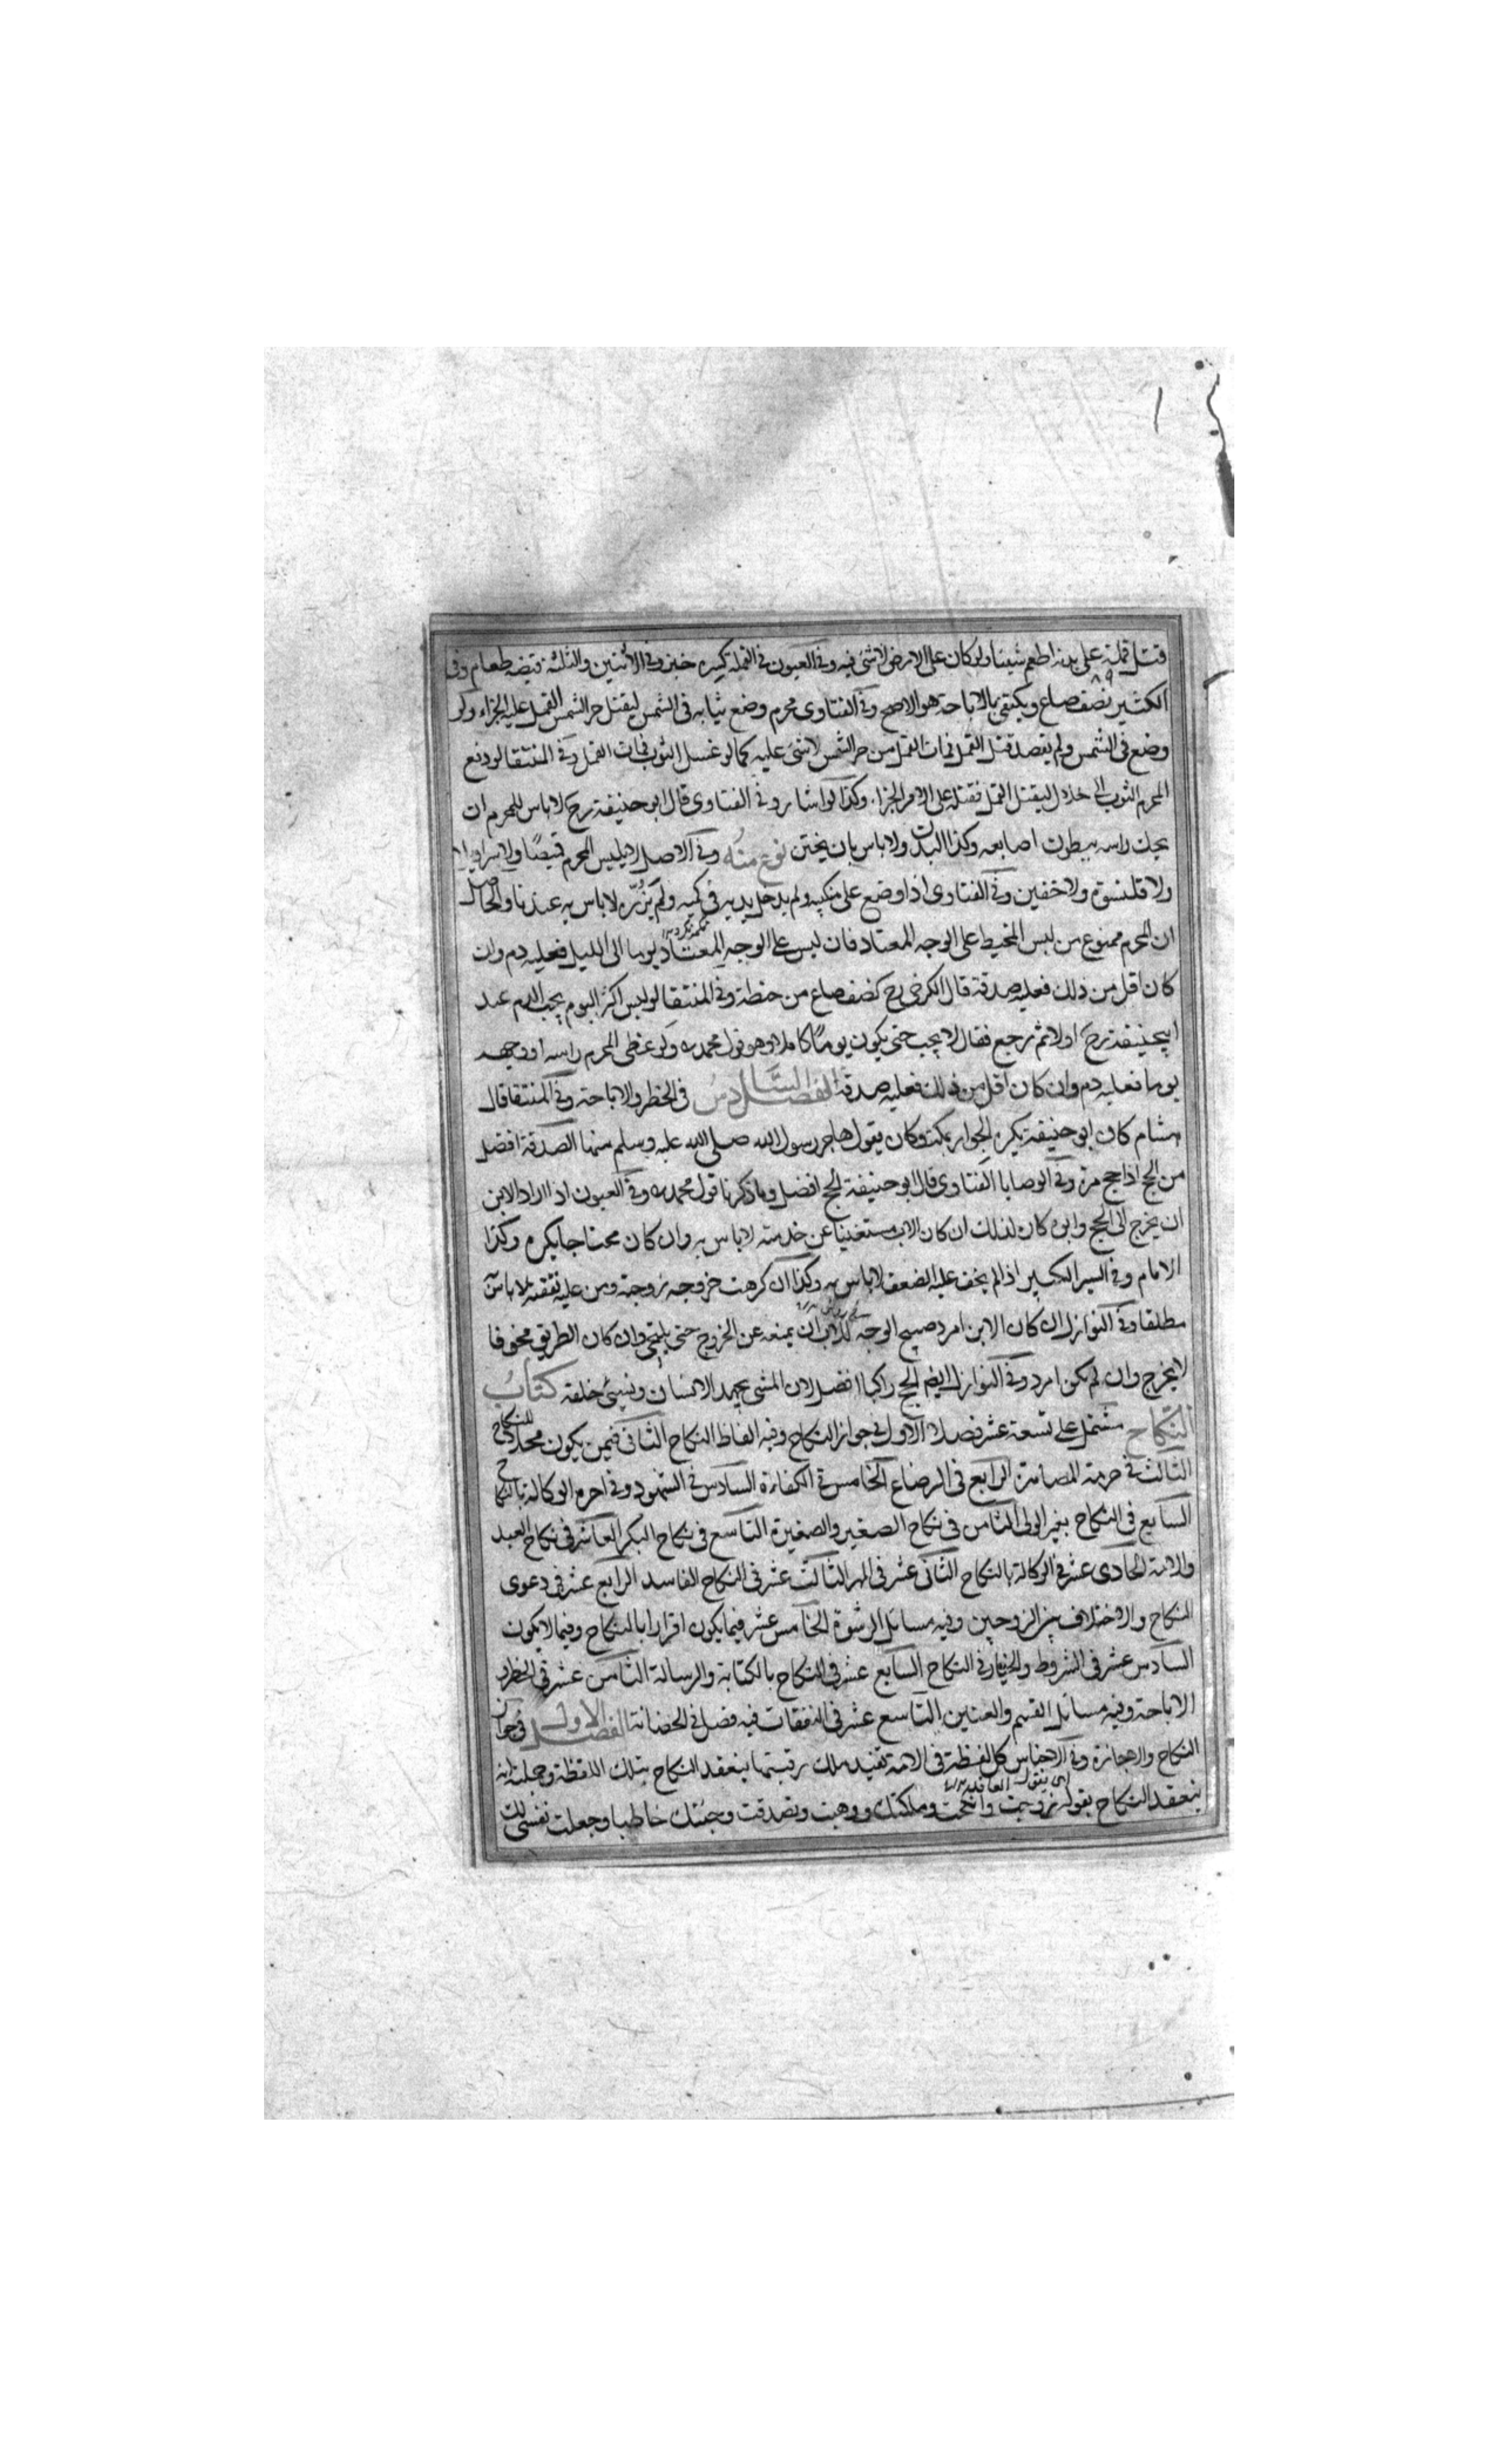 قتل قملة على بدنه اطعم شيئا ولو كان على الارض لاشئ فيه وفي العيون في القملة كسرة خبز وفي الاثنين والثلثة قبضة طعام وفى
الكثير نصف صاع ويكتفى بالاباحة هو الاصح وفي الفتاوى محرم وضع ثيابه فى الشمس ليقتل حر الشمس القمل عليه الجزاء ولو
وضع فى الشمس ولم يقصد قتل القمل فمات القمل من حر الشمس لاشئ عليه كما لو غسل الثوب فمات القمل وفي المنتقا لو دفع
المحرم الثوب الى حلال ليقتل القمل فقتله على الامر الجزاء وكذا لو اشار وفي الفتاوى قال ابو حنيفة رح لا باس للمحرم ان
يحك راسه ببطون اصابعه وكذا البدن ولا باس بان يختتن نوع منه وفي الاصل لا يلبس المحرم قميصا ولا سراويل
ولا قلنسوة ولا خفين وفي الفتاوى اذا وضع على منكبيه ولم يدخل يديه في كميه ولم يزره لا باس به عندنا والحاصل
ان المحرم ممنوع من لبس المخيط على الوجه المعتاد فان لبس على الوجه المعتاد يوما الى الليل فعليه دم وان
كان اقل من ذلك فعليه صدقة قال الكرخي رح كنصف صاع من حنطة وفي المنتقا لو لبس اكثر اليوم يجب الدم عند
ابيحنيفة رح اولا ثم رجع فقال لا يجب حتى يكون يوما كاملا وهو قول محمد ره ولو غطى المحرم راسه او وجهه
يوما فعليه دم وان كان اقل من ذلك فعليه صدقة الفصل السادس فى الحظر والاباحة وفي المنتقا قال
هشام كان ابو حنيفة يكره الجوار بمكة وكان يقول هاجر رسول الله صلى الله عليه وسلم منها الصدقة افضل
من الحج اذا حج مرة وفي الوصايا الفتاوى قال ابو حنيفة الحج افضل وما ذكرنا قول محمد ره وفي العيون اذا اراد الابن
ان يخرج الى الحج وابوه كاره لذلك ان كان الاب مستغنيا عن خدمته لا باس به وان كان محتاجا يكره وكذا
الامام وفي السير الكبير اذا لم يخف عليه الضعف لا باس به وكذا ان كرهت خروجه زوجته ومن عليه نفقته لا باس
مطلقا وفي النوازل ان كان الابن امرد صبيح الوجه للاب ان يمنعه عن الخروج حتى يلتحي وان كان الطريق مخوفا
لا يخرج وان لم يكن امرد وفي النوازل ايضا الحج راكبا افضل لان المشي يجهد الانسان ويسيئ خلقه كتاب
النكاح مشتمل على تسعة عشر فصلا الاول في جواز النكاح وفيه الفاظ النكاح الثانى فيمن يكون محلا للنكاح
الثالث في حرمة المصاهرة الرابع فى الرضاع الخامس في الكفاءة السادس في الشهود وفي اخره الوكالة بالنكاح
السابع فى النكاح بغير الولى الثامن فى نكاح الصغير والصغيرة التاسع فى نكاح البكر العاشر فى نكاح العبد
والامة الحادى عشر في الوكالة بالنكاح الثانى عشر فى المهر الثالث عشر فى النكاح الفاسد الرابع عشر فى دعوى
النكاح والاختلاف بين الزوجين وفيه مسائل الرشوة الخامس عشر فيما يكون اقرارا بالنكاح وفيما لا يكون
السادس عشر فى الشروط والخيار في النكاح السابع عشر فى النكاح بالكتابة والرسالة الثامن عشر في الحظر و
الاباحة وفيه مسائل القسم والعنين التاسع عشر فى النفقات فيه فصل فى الحضانة الفصل الاول في جواز
النكاح والاجازة وفي الاجناس كل لفظة فى الامة تفيد ملك رقبتها ينعقد النكاح بتلك اللفظة وجملته انه
ينعقد النكاح بقوله زوجت وانكحت وملكتك ووهبت وتصدقت وجئتك خاطبا وجعلت نفسي لك